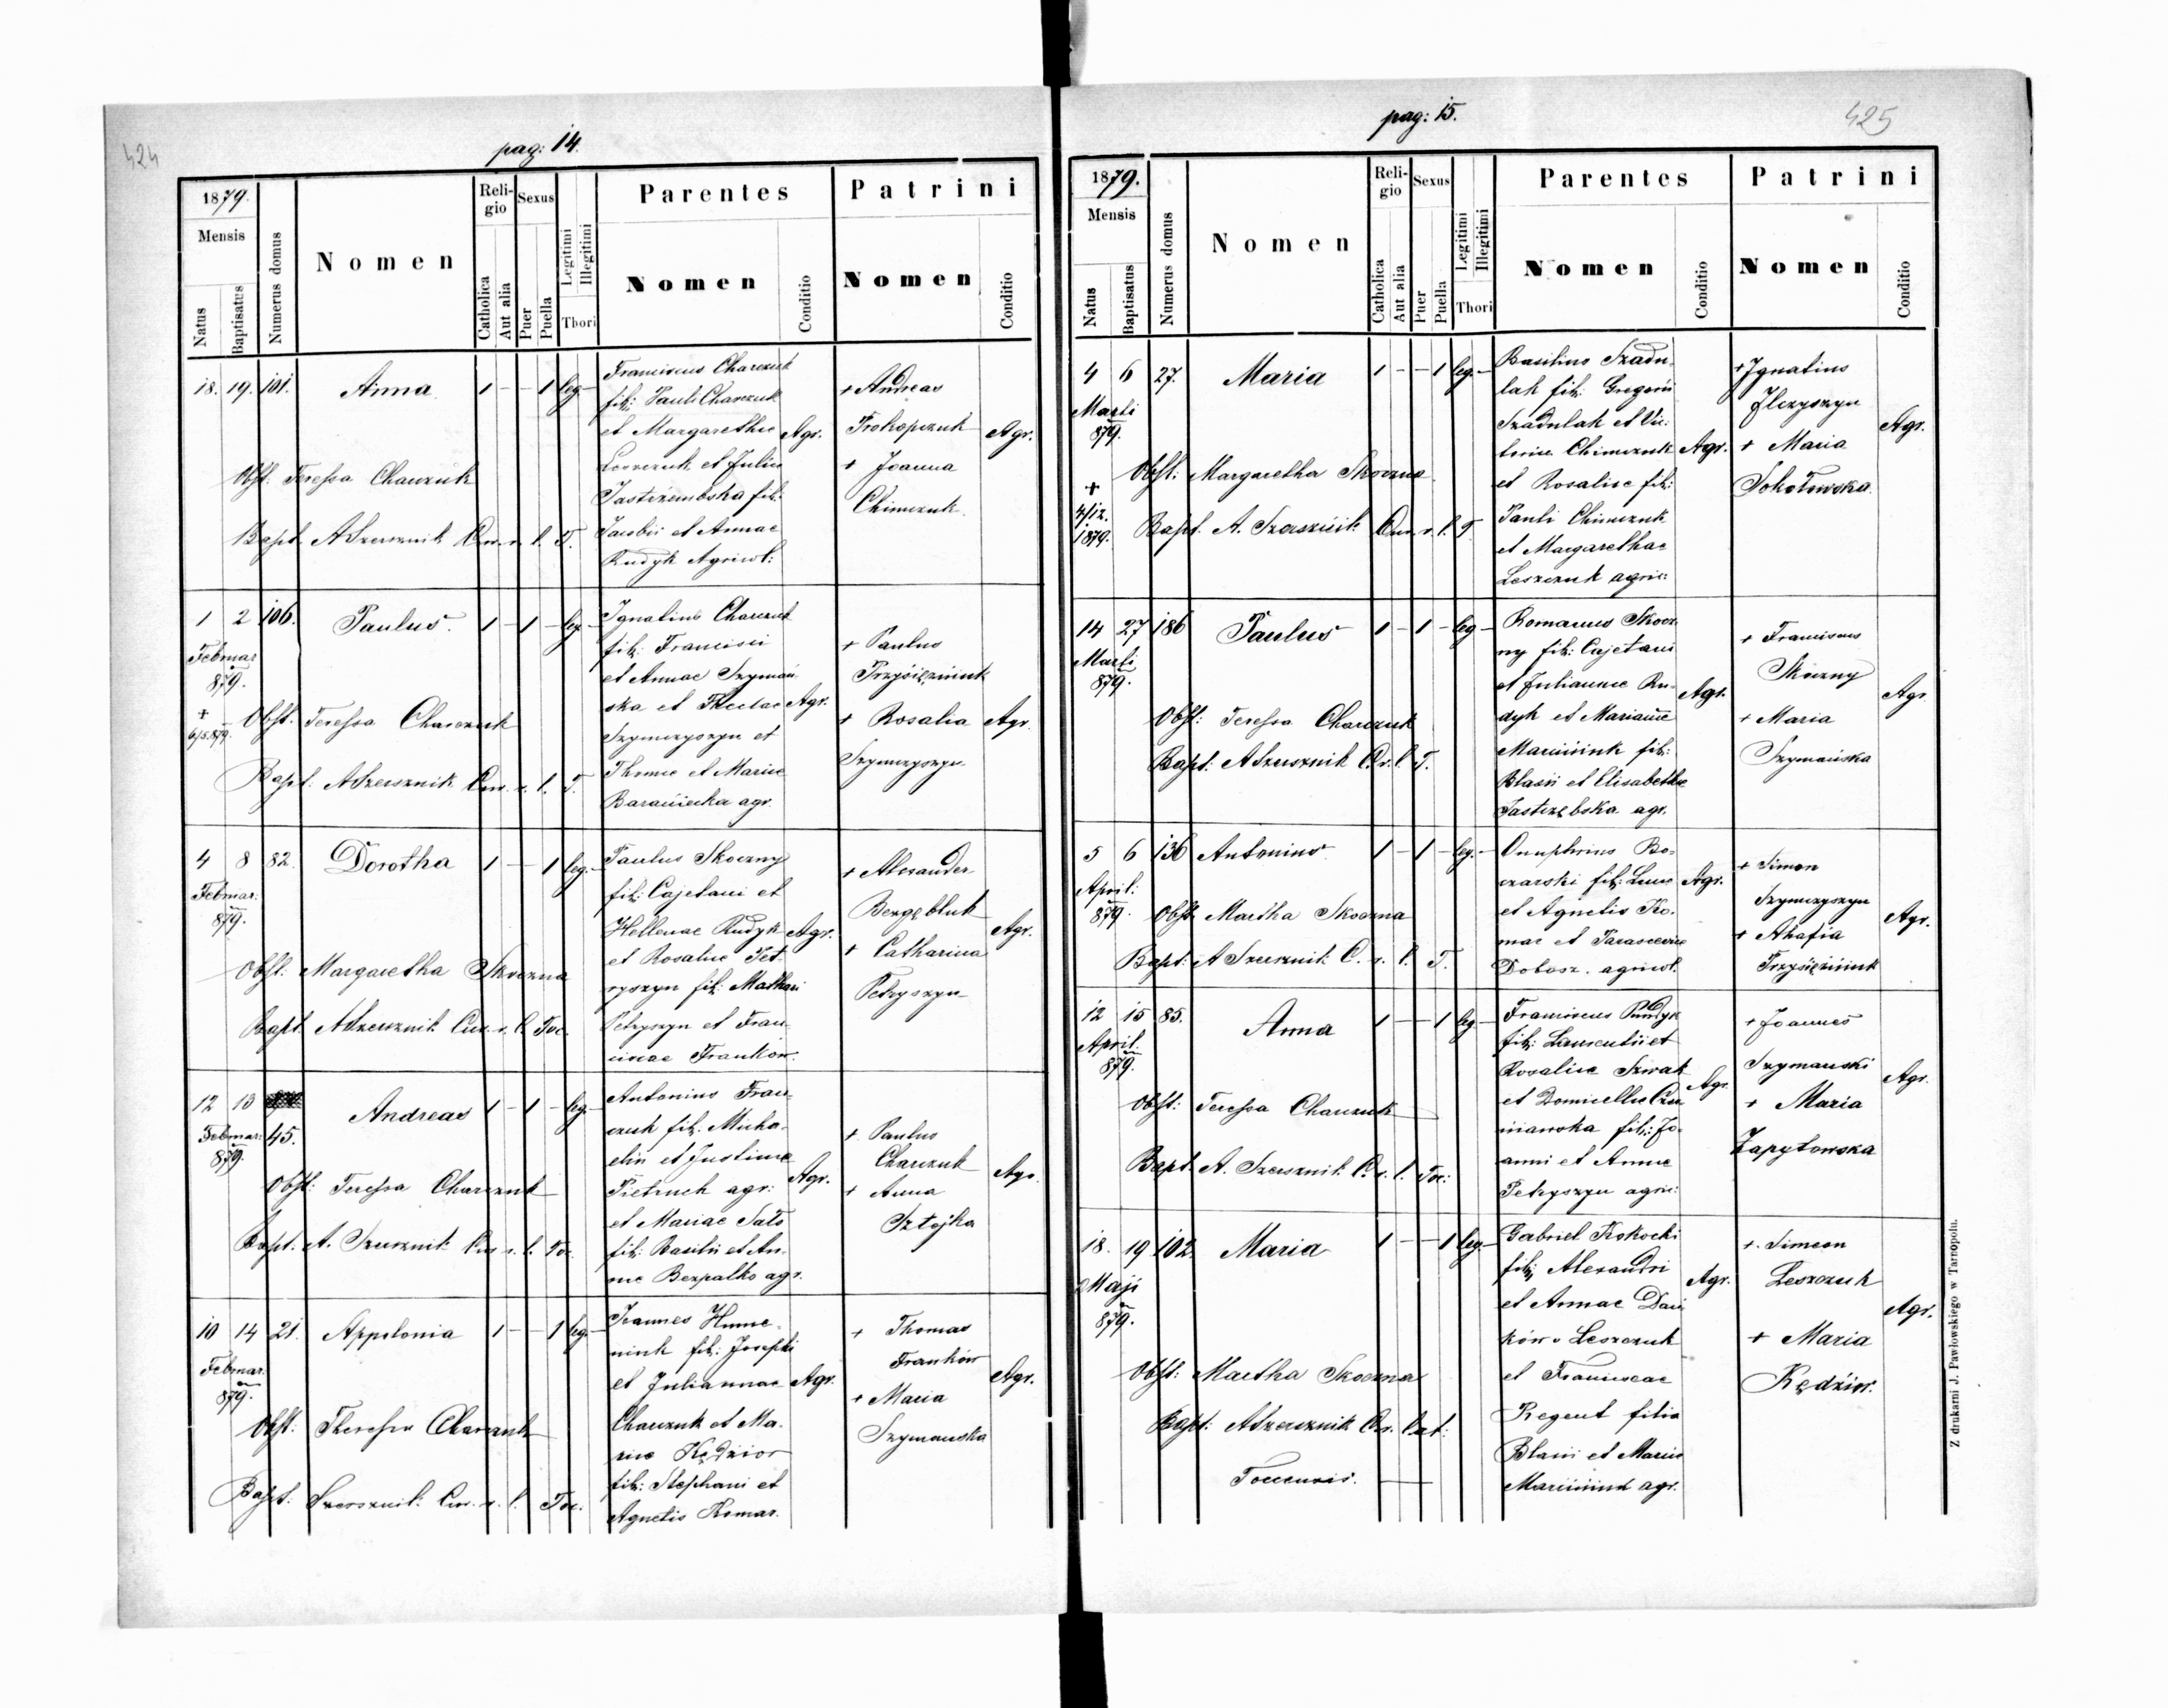 424
pag: 14.
1879.
Mensis
Natus
Baptisatus
Numerus domus
Nomen
Religio
Catholica
Aut alia
Sexus
Puer
Puella
Legitimi
Illegitimi
Thori
Parentes
Nomen
Conditio
Patrini
Nomen
Conditio
18. 19. 101. Anna 1 - - 1 leg-
Obst. Teressa Charczuk
Bapt. A Szersznik Cur. r. l. T.
Franciscus Charczuk
fil: Pauli Charczuk
et Margarethae
Leszczuk et Julia
Jastrzembska fil:
Jacobi et Annae
Rudyk Agricol:
Agr.
+ Andreas
Prokopczuk
+ Joanna
Chimczuk
Agr.
1 2 106. Paulus. 1 - 1 - leg-
Februar
879.
+
6/5 879.
Obst. Teressa Charczuk
Bapt: A Szersznik Cur. r. l. T.
Ignatius Charczuk
fil: Francisci
et Annae Szymań
ska et Theclae
Szymczyszyn et
Thomae et Mariae
Baraniecka agr.
Agr.
+ Paulus
Przysiężniuk
+ Rosalia
Szymczyszyn
Agr.
4 8 82. Dorotha 1 - - 1 leg.-
Februar.
879.
Obst: Margaretha Skoczna
Bapt. A Szersznik Cur. r. l. Toc.
Paulus Skoczny
fil: Cajetani et
Hellenae Rudyk
et Rosaliae Pet-
ryszyn fil: Mathaei
Petryszyn et Fran-
ciscae Franków.
Agr.
+ Alexander
+ Catharina
Petryszyn
Agr.
12 13
45. Andreas 1 - 1 - leg-
Februar:
879.
Obst: Teressa Charczuk
Bapt. A. Szersznik Cur. r. l. Toc.
Antonius Fran-
czuk fil. Micha-
elis et Justinae
Pietruch agr:
et Mariae Sało
fil: Basilii et An-
nae Bezpalko agr.
Agr.
+ Paulus
Charczuk
+ Anna
Sztojka
Agr.
10 14 21. Appolonia 1 - - 1 leg-
Februar.
879.
Obst: Theressa Charczuk
Bapt: Szersznik Cur. r. l. Toc.
Joannes Hume-
niuk fil: Josephi
et Juliannae
Charczuk et Ma-
riae Kędzior
fil: Stephani et
Agnetis Komar.
Agr.
+ Thomas
Franków
+ Maria
Szymanska
Agr.
pag: 15.
425
1879.
Mensis
Natus
Baptisatus
Numerus domus
Nomen
Religio
Catholica
Aut alia
Sexus
Puer
Puella
Legitimi
Illegitimi
Thori
Parentes
Nomen
Conditio
Patrini
Nomen
Conditio
4 6 27. Maria 1 - - 1 leg.-
Marti
879.
+
4/12.
1879.
Obst: Margaretha Skoczna
Bapt. A. Szersznik Cur. r. l. T.
Basilius Szadu-
lak fil: Gregorii
Szadulak et Vic-
toriae Chimczuk
et Rosaliae fil:
Pauli Chimczuk
et Margarethae
Leszczuk agric:
Agr.
+ Ignatius
Ilczyszyn
+ Maria
Sokołowska
Agr.
14 27 186 Paulus 1 - 1 - leg-
Marti
879.
Obst: Teressa Charczuk
Bapt: A Szersznik C. r. l. T.
Romanus Skocz
ny fil: Cajetani
et Juliannae Ru-
dyk et Marianne
Marciniuk fil:
Blasii et Elisabethae
Jastrzębska agr.
Agr.
+ Franciscus
Skoczny
+ Maria
Szymańska
Agr
5 6 136 Antonius 1 - 1 - leg.-
April:
879.
Obst. Martha Skoczna
Bapt: A Szersznik C. r. l. T.
Onuphrius Bo-
czarski fil: Lucae
et Agnetis Ko-
mar et Parascevae
Dobosz. agricol.
Agr.
+ Simon
Szymczyszyn
+ Ahafia
Przysiężniuk
Agr.
12 15 85. Anna 1 - - 1 leg-
April.
879.
Obst: Teressa Charczuk
Bapt. A. Szersznik C. r. l. Toc:
Franciscus Rudyk
fil: Laurentii et
Rosaliae Szwak
et Domicellae
fil: Jo-
anni et Annae
Petryszyn agric:
Agr.
+ Joannes
Szymanski
+ Maria
Zapytowska
Agr.
18. 19 102 Maria 1 - - 1 leg-
Maji
879.
Obst: Martha Skoczna
Bapt: A Szersznik C. r. Cat:
Toccensis.
Gabriel Kokocki
fil: Alexandri
et Annae Dań
ków Leszczuk
et Franciscae
Regent filia
Blasii et Mariae
Marciniuk agr.
Agr.
+ Simeon
Leszczuk
+ Maria
Kędzior.
Agr.
Z drukarni J. Pawłowskiego w Tarnopolu.